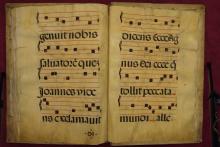 genuit nobis
saluatorē que
Joannes vice
ns exclamauit
dicens Ecce Ag
nus dei ecce q
tollit peccata
mundi. alle